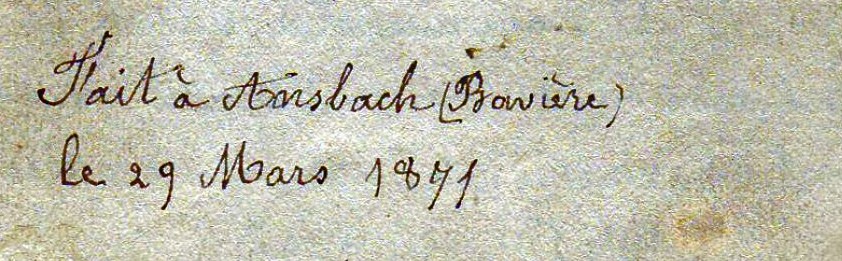 Fait à Ansbach (Bavière)
le 29 Mars 1871